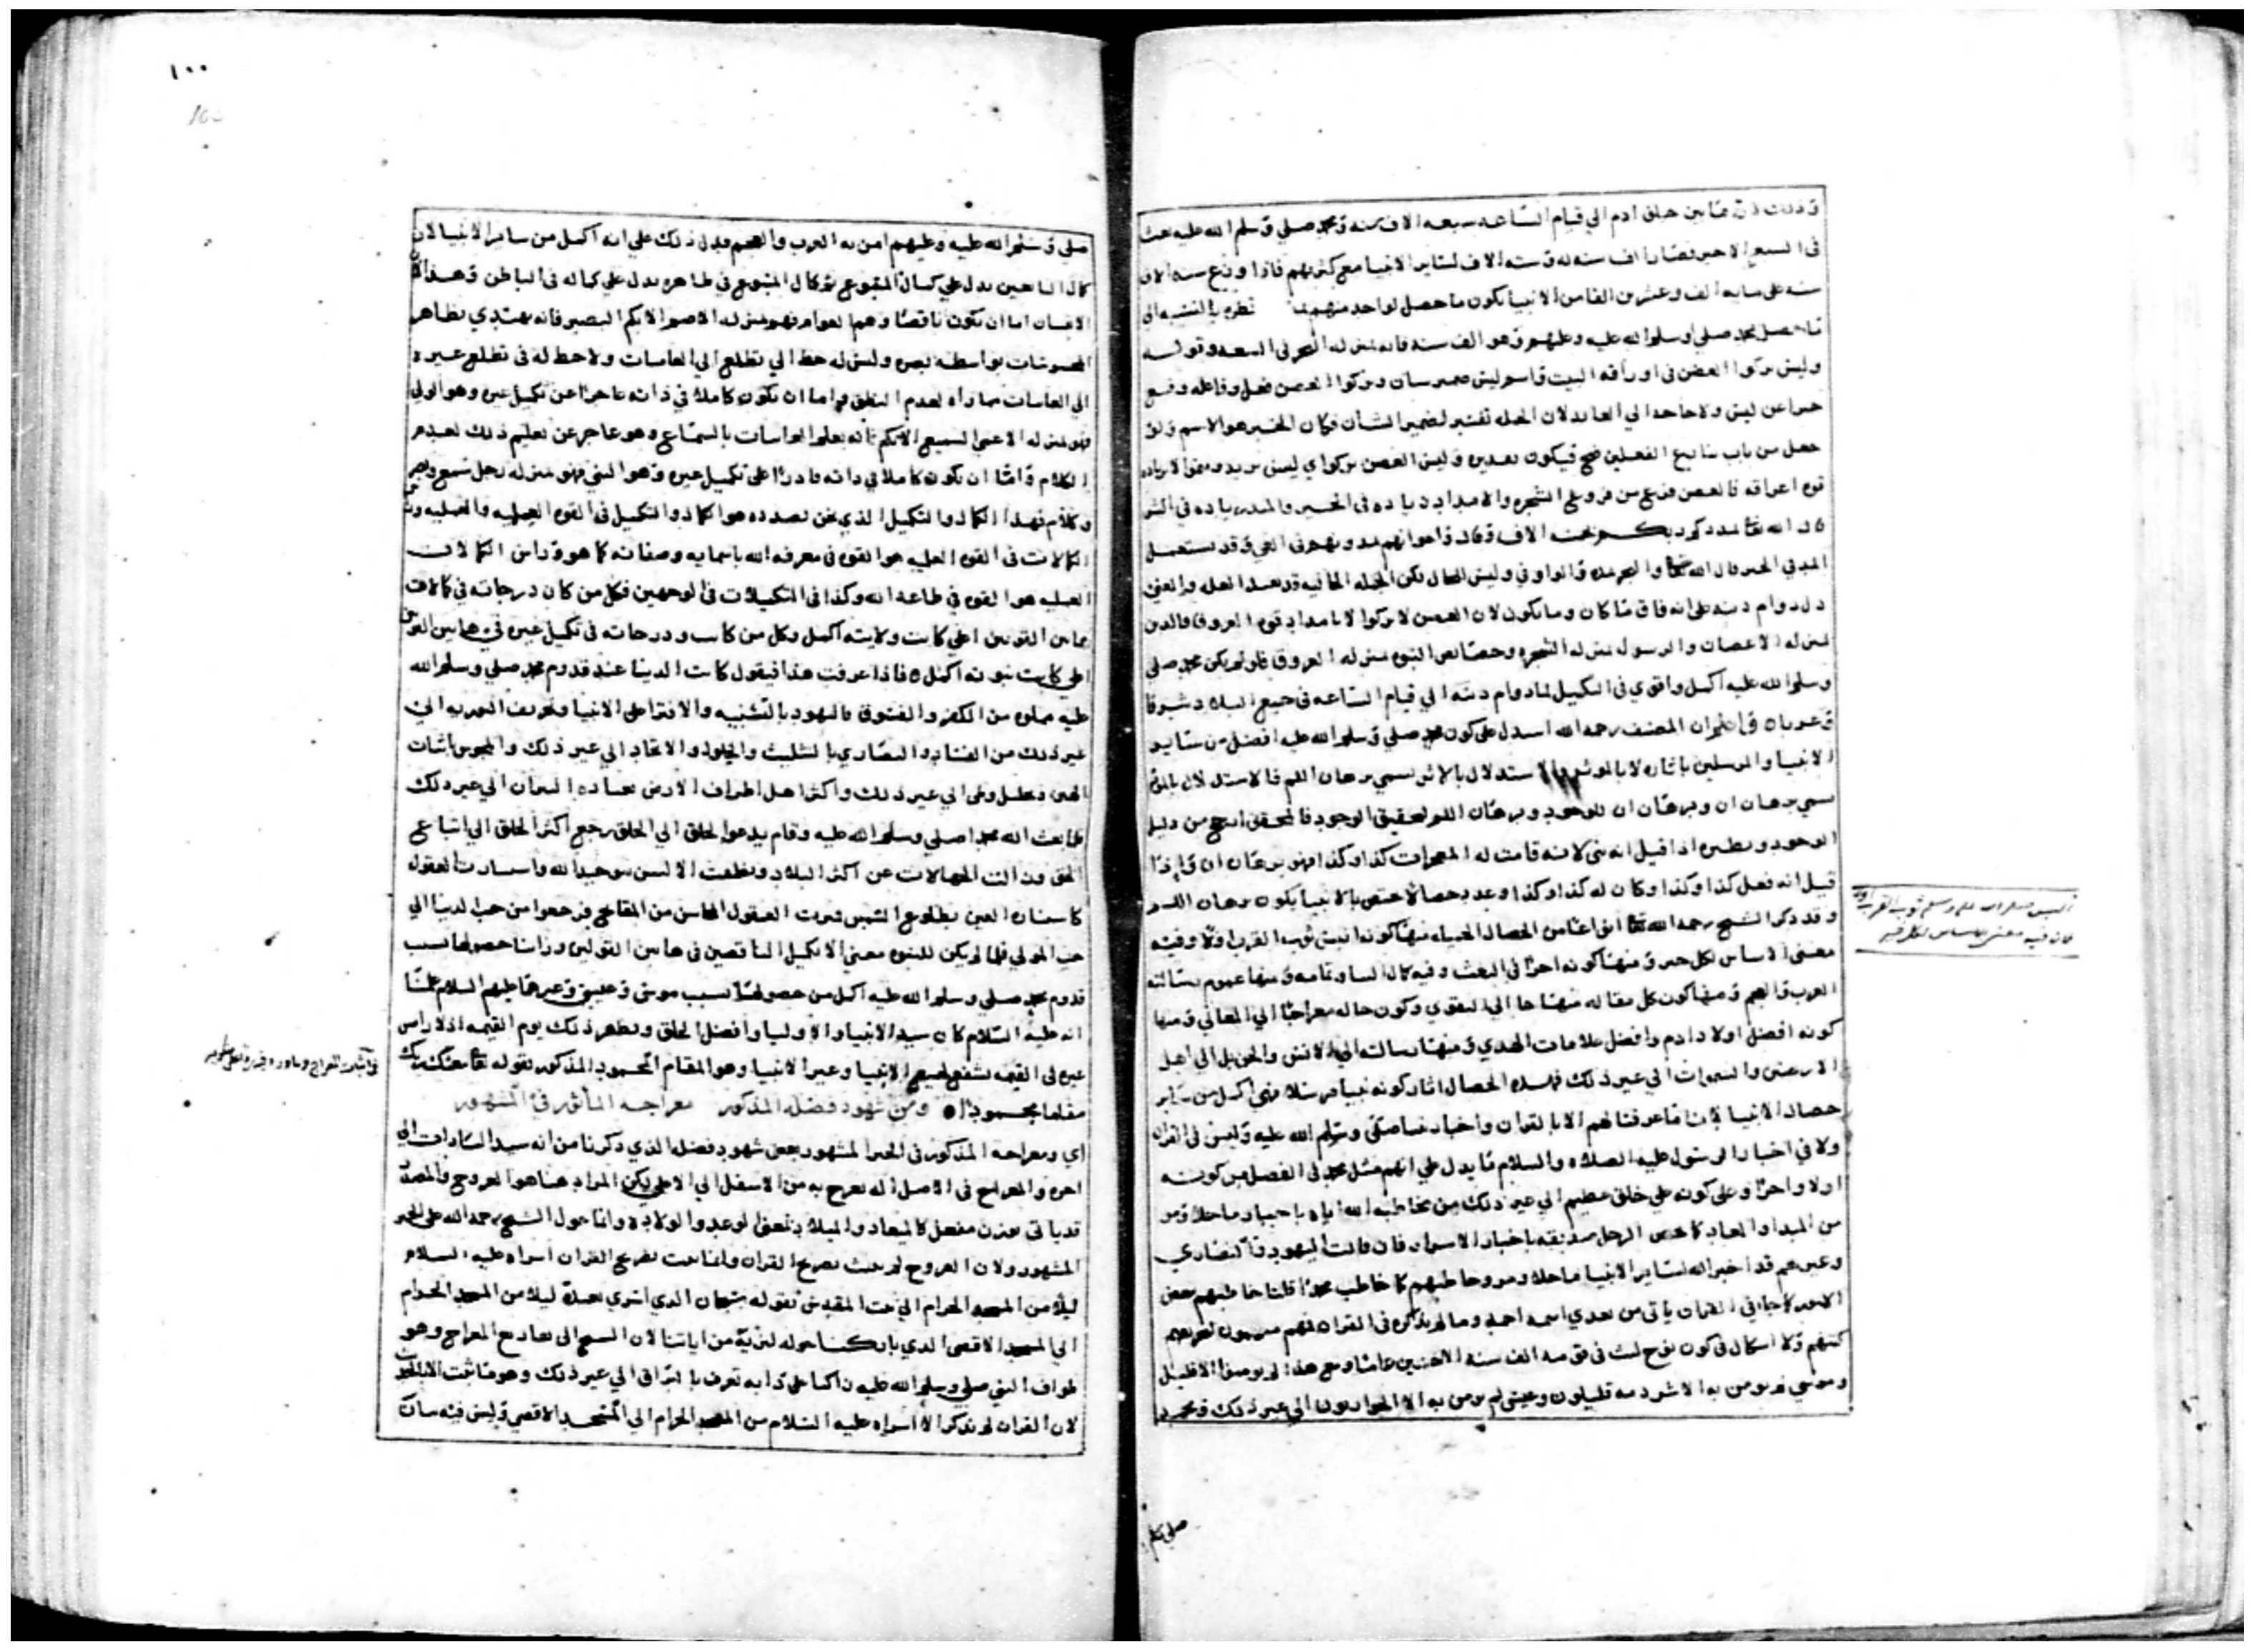 وذلك لان ما بين خلق ادم الي قيام الساعه سبعه الاف سنه ومحمد صلي وسلم الله عليه بعث
في السبع الاخير فصار الف سنه له وسته الاف لساير الانبيا مع كثرتهم فاذا وزع سته الاف
سنه علي مايه الف وعشرين الفا من الانبيا يكون ما حصل لواحد منهم قطره بالنسبه الي
ما حصل لمحمد صلي وسلم الله عليه وعليهم وهو الف سنه فانه بمنزله البحر في السعه وقوله
وليس يزكوا الغصن في اوراقه البيت فاسم ليس ضمير شان ويزكوا الغصن فعل وفاعله وقع
خبرا عن ليس ولا حاجه الي العايد لان الجمله تفسير لضمير الشان فكان الخبر هو الاسم ولو
جعل من باب تنازع الفعلين صح فيكون تقديره وليس الغصن يزكوا اي ليس يزيد وينموا الا بزياده
قوه اعراقه فالغصن فرع من فروع الشجره والامداد زياده في الخير والمد زياده في الشر
قال الله تعا يمددكم ربكم بخمسه الاف وقال واخوانهم يمدونهم في الغي وقد يستعمل
المد في الخير قال الله تعا والبحر يمده والواو في وليس للحال لكن الجمله الحاليه قد تفيد العله والمعني
دل دوام دينه علي انه فاق ما كان وما يكون لان الغصن لا يزكوا الا بامداد قوه العروق فالدين
بمنزله الاغصان والرسول بمنزله الشجره وخصايص النبوه بمنزله العروق فلو لم يكن محمد صلي
وسلم الله عليه اكمل واقوي في التكميل لما دام دينه الي قيام الساعه في جميع البلاد شرقا
وغربا واعلم ان المصنف رحمه الله استدل علي كون محمد صلي وسلم الله عليه افضل من ساير
الانبيا والمرسلين باثاره لا بالموثر والاستدلال بالاثر يسمي برهان اللم فالاستدلال بالموثر
يسمي برهان ان وبرهان ان للوجود وبرهان اللم لتحقيق الوجود فالمحقق ارجح من دليل
الوجود ونظيره اذا قيل انه نبي لانه قامت له المعجزات كذا وكذا فهو برهان ان واذا
قيل انه فعل كذا وكذا وكان له كذا وكذا وعدد خصالا تختص بالانبيا يكون برهان اللم
وقد ذكر الشيخ رحمه الله تعا انواعا من الخصال الحميده منها كونه البس ثوب القرب اولا وفيه
معني الاساس لكل خير ومنها كونه اخرا في البعث وفيه كمال السا وتمامه ومنها عموم رسالته
العرب والعجم ومنها كون كل مقاله منهاجا الي التقوي وكون حاله معراجا الي المعالي ومنها
كونه افضل اولاد ادم وافضل علامات الهدي ومنها رسالته الي الانس والجن بل الي اهل
الارضين والسموات الي غير ذلك فهذه الخصال اثار كونه نبيا مرسلا وهي اكمل من ساير
خصال الانبيا لانا ما عرفنا لهم الا بالقران واخبار نبينا صلي وسلم الله عليه وليس في القران
ولا في اخبار الرسول عليه الصلاه والسلام ما يدل علي انهم مثل محمد في الفضل من كونه
اولا واخرا وعلي كونه علي خلق عظيم الي غير ذلك من مخاطبه الله اياه باخبار ما خلا ومر
من المبدا والمعاد كما يخص الرجل صديقه باخبار الاسرار فان قالت اليهود والنصاري
وغيرهم قد اخبر الله لساير الانبيا ما خلا ومر وخاطبهم كما خاطب محمدا قلنا خاطبهم ببعض
الاخبار كما جا في القران ياتي من بعدي اسمه احمد وما لم يذكره في القران فهم متهمون لتحريفهم
كتبهم ولا اشكال في كون نوح لبث في قومه الف سنه الا خمسين عاما ومع هذا لم يومن الا قليل
وموسي لم يومن به الا شرذمه قليلون وعيسي لم يومن به الا الحواريون الي غير ذلك ومحمد
البس صلى الله عليه وسلم ثوب القرب اولا
فان فيه معنى الاساس لكل خير
صلي وسلم
١٠٠
100
صلي وسلم الله عليه وعليهم امن به العرب والعجم فدل ذلك علي انه اكمل من ساير الانبيا لان
كمال التابعين يدل علي كمال المتبوع ثم كمال المتبوع في ظاهره يدل علي كماله في الباطن وهذا لان
الانسان اما ان يكون ناقصا وهم العوام فهو بمنزله الاصم الابكم البصير فانه يهتدي بظاهر
المحسوسات بواسطه بصره وليس له حظ الي تطلع الي الغايبات ولا حظ له في تطلع غيره
الي الغايبات بما رآه لعدم النطق واما ان يكون كاملا في ذاته عاجزا عن تكميل غيره وهو الولي
فهو بمنزله الاعمي السميع الابكم فانه يعلم الغايبات بالسماع وهو عاجز عن تعليم ذلك لعدم
الكلام واما ان يكون كاملا في ذاته قادرا علي تكميل غيره وهو النبي فهو بمنزله رجل سميع وبصير
وكلام فهذا الكمال والتكميل الذي نحن بصدده هو الكمال والتكميل في القوه العلميه والعمليه وراس
الكمالات في القوه العلميه هو القوه في معرفه الله باسمايه وصفاته كما هو وراس الكمالات
العمليه هو القوه في طاعه الله وكذا في التكميلات في الوجهين فكل من كان درجاته في كمالات
هاتين القوتين اعلي كانت ولايته اكمل وكل من كانت درجاته في تكميل غيره في هاتين القوتين
اعلي كانت نبوته اكمل فاذا عرفت هذا فيقول كانت الدنيا عند قدوم محمد صلي وسلم الله
عليه مملوه من الكفر والفسوق فاليهود بالتشبيه والافترا علي الانبيا وتحريف التوريه الي
غير ذلك من الفساد والنصاري بالتثليث والحلول والاتحاد الي غير ذلك والمجوس اثبات
الهين الي غير ذلك واكثر اهل اطراف الارض بعباده النيران الي غير ذلك
فلما بعث الله محمدا صلي وسلم الله عليه وقام يدعوا الخلق الي الحق رجع اكثر الخلق الي اتباع
الحق وزالت الجهالات عن اكثر البلاد ونطقت الالسن بتوحيد الله واستنارت العقول
كاستناره العين بطلوع الشمس فبرئت العقول المحاسن من المقابح فرجعوا من حب الدنيا الي
حب المولي فلما لم يكن للنبوه معني الا تكميل الناقصين في هاتين القوتين وراينا حصولها بسبب
قدوم محمد صلي وسلم الله عليه اكمل من حصولها بسبب موسي وعيسي وغيرهما عليهم السلام علمنا
انه عليه السلام كان سيد الانبيا والاوليا وافضل الخلق ويظهر ذلك يوم القيمه اذ لا راس
غيره في القيمه يشفع لجميع الانبيا وغير الانبيا وهو المقام المحمود المذكور لقوله تعا يبعثك ربك
مقاما محمودا ومن شهود فضله المذكور معراجه الماثور في المشهور
اي ومعراجه المذكور في الخبر المشهور بعض شهود فضله الذي ذكرنا من انه سيد السادات الي
اخره والمعراج في الاصل اله يعرج به من الاسفل الي الاعلي لكن المراد هنا هو العروج والمصدر
قد ياتي بوزن مفعل كالميعاد والميلاد بمعني الوعد والولاده وانما حول الشيخ رحمه الله علي الخبر
المشهور ولان العروج لم يثبت بصريح القران وانما يثبت بصريح القران اسراه عليه السلام
ليلا من المسجد الحرام الي بيت المقدس بقوله سبحان الذي اسري بعبده ليلا من المسجد الحرام
الي المسجد الاقصي الذي باركنا حوله لنريه من اياتنا لان السير الي معارج المعراج وهو
طواف النبي صلي وسلم الله عليه راكبا علي دابه تعرف بالبراق الي غير ذلك وهو ما ثبت الا بالخبر
لان القران لم يذكر الا اسراه عليه السلام من المسجد الحرام الي المسجد الاقصي وليس فيه بيان
في اثبات المعراج وما ورد فيه